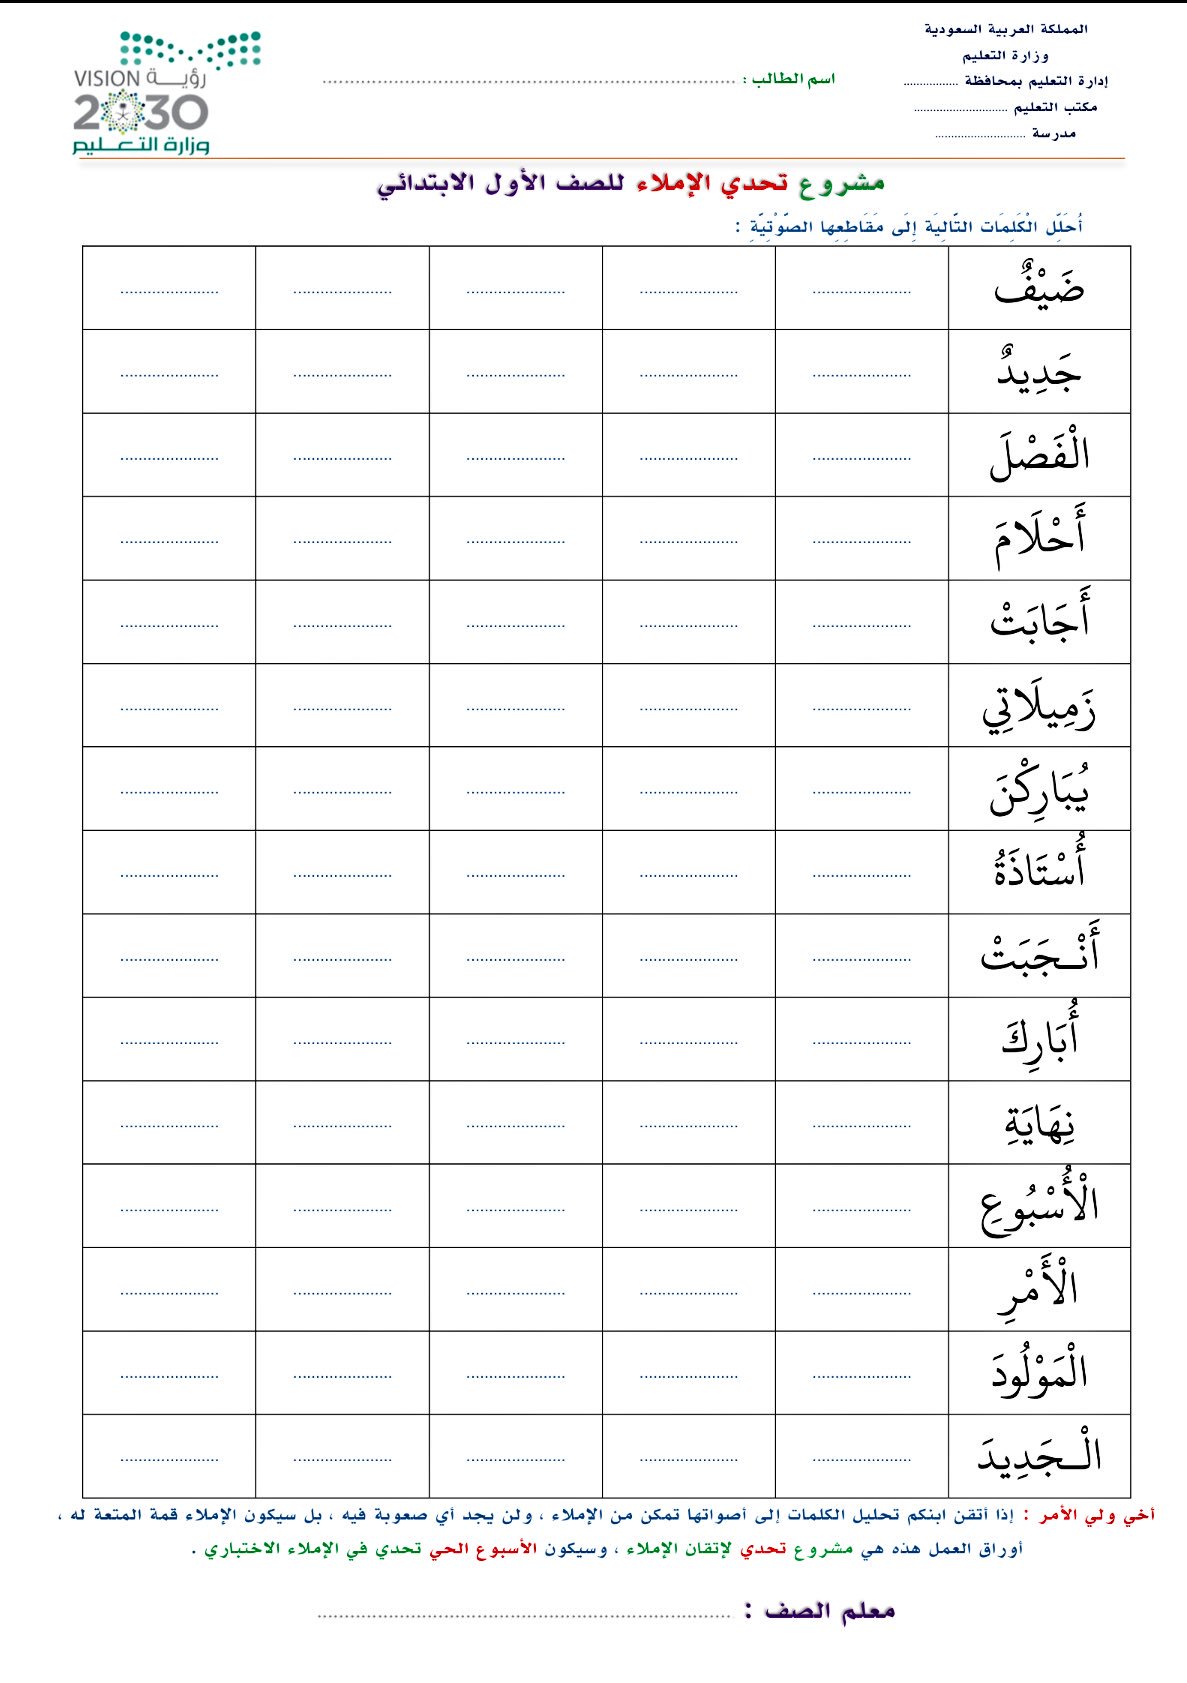 المملكة العربية السعودية
وزارة التعليم
إدارة التعليم بمحافظة .................
مكتب التعليم .............................
مدرسة ............................
اسم الطالب : ..........................................................................................
VISION رؤيـــة
2030
وزارة التعـــليم
مشروع تحدي الإملاء للصف الأول الابتدائي
أُحَلِّل الْكَلِمَات التَّالِيَة إِلَى مَقَاطِعِها الصَّوْتِيَّةِ :
ضَيْفٌ ...................... ...................... ...................... ...................... ......................
جَدِيدٌ ...................... ...................... ...................... ...................... ......................
الْفَصْلَ ...................... ...................... ...................... ...................... ......................
أَحْلَامَ ...................... ...................... ...................... ...................... ......................
أَجَابَتْ ...................... ...................... ...................... ...................... ......................
زَمِيلَاتِي ...................... ...................... ...................... ...................... ......................
يُبَارِكْنَ ...................... ...................... ...................... ...................... ......................
أُسْتَاذَةُ ...................... ...................... ...................... ...................... ......................
أَنْـجَبَتْ ...................... ...................... ...................... ...................... ......................
أُبَارِكَ ...................... ...................... ...................... ...................... ......................
نِهَايَةِ ...................... ...................... ...................... ...................... ......................
الْأُسْبُوعِ ...................... ...................... ...................... ...................... ......................
الْأَمْرِ ...................... ...................... ...................... ...................... ......................
الْمَوْلُودَ ...................... ...................... ...................... ...................... ......................
الْـجَدِيدَ ...................... ...................... ...................... ...................... ......................
أخي ولي الأمر : إذا أتقن ابنكم تحليل الكلمات إلى أصواتها تمكن من الإملاء ، ولن يجد أي صعوبة فيه ، بل سيكون الإملاء قمة المتعة له ،
أوراق العمل هذه هي مشروع تحدي لإتقان الإملاء ، وسيكون الأسبوع الحي تحدي في الإملاء الاختباري .
معلم الصف : ..........................................................................................